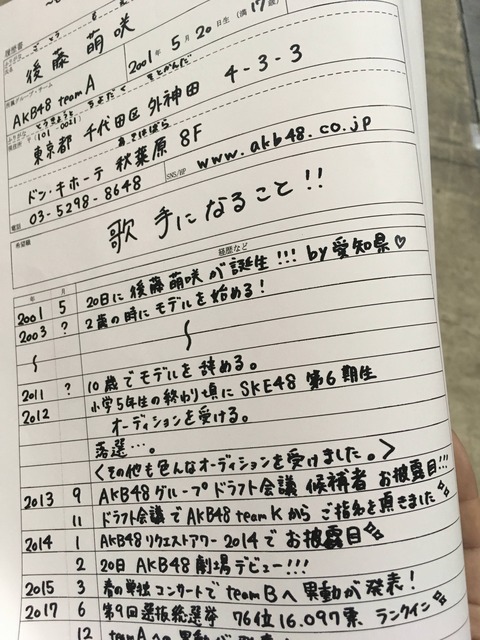 履歴書
ふりがな ごとう もえ
氏名 後藤 萌咲
2001年 5月 20日生 (満17歳)
所属グループ・チーム
AKB48 team A
ふりがな とうきょうと ちよだく そとかんだ
現住所 〒(101-0021)
東京都 千代田区 外神田 4-3-3
あきはばら
ドン・キホーテ 秋葉原 8F
電話 03-5298-8648
SNS/HP www.akb48.co.jp
希望職 歌手になること!!
年 月 経歴など
2001 5 20日に後藤萌咲が誕生!!! by愛知県♡
2003 ? 2歳の時にモデルを始める!
〜 〜
2011 ? 10歳でモデルを辞める。
2012 小学5年生の終わり頃にSKE48 第6期生
オーディションを受ける。
落選…。
<その他も色んなオーディションを受けました。>
2013 9 AKB48グループドラフト会議 候補者 お披露目!!!
11 ドラフト会議でAKB48 teamKからご指名を頂きました
2014 1 AKB48リクエストアワー2014でお披露目
2 20日 AKB48劇場デビュー!!!
2015 3 春の単独コンサートでteamBへ異動が発表!
2017 6 第9回選抜総選挙 76位 16.097票 ランクイン
12 teamAへの異動が発表